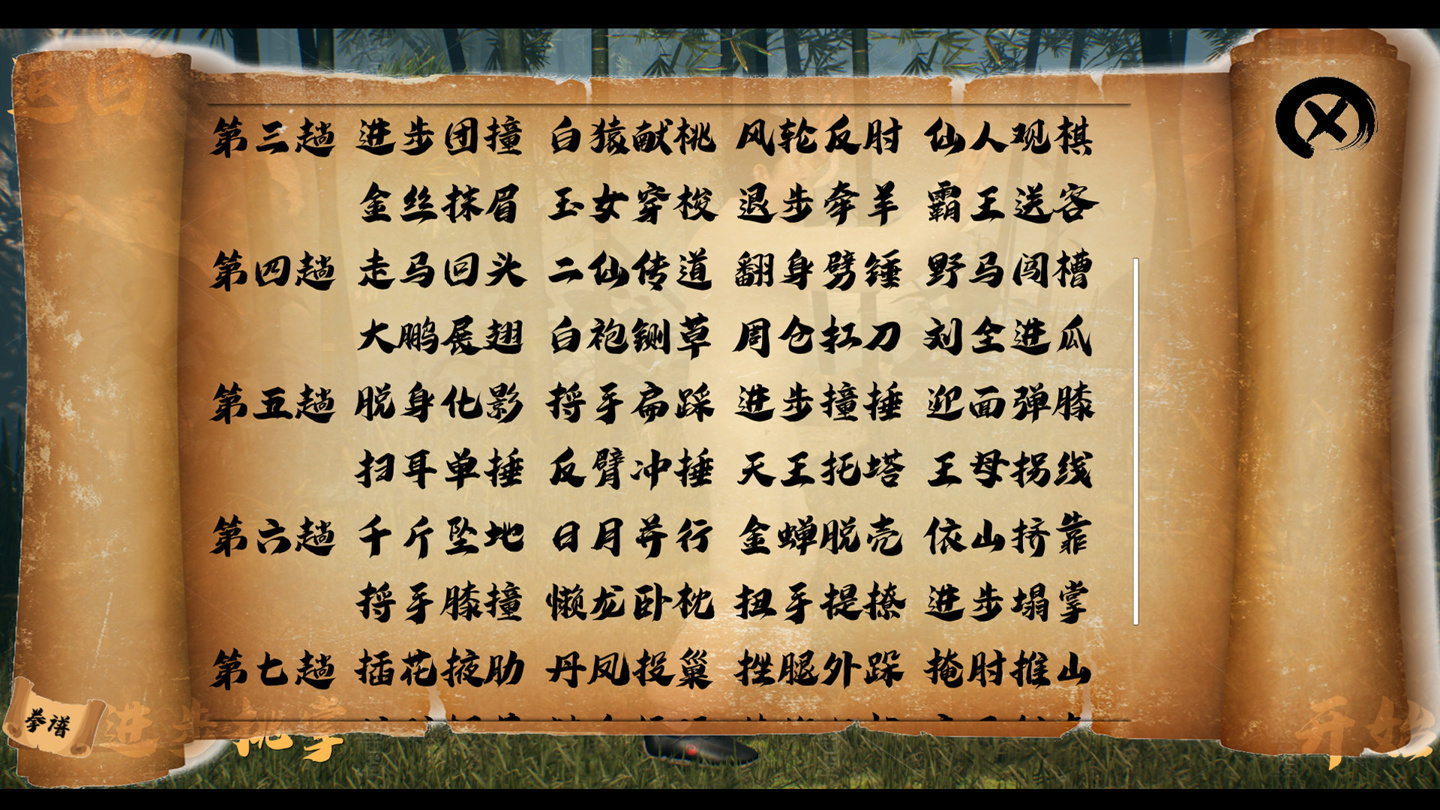 返回
第三趟 进步团撞 白猿献桃 风轮反肘 仙人观棋
金丝抹眉 玉女穿梭 退步牵羊 霸王送客
第四趟 走马回头 二仙传道 翻身劈锤 野马闯槽
大鹏展翅 白袍铡草 周仓扛刀 刘全进瓜
第五趟 脱身化影 捋手扁踩 进步撞捶 迎面弹膝
扫耳单捶 反臂冲捶 天王托塔 王母拐线
第六趟 千斤坠地 日月并行 金蝉脱壳 依山挤靠
捋手膝撞 懒龙卧枕 扭手提撩 进步塌掌
第七趟 插花掖肋 丹凤投巢 挫腿外跺 掩肘推山
拳谱
进步挑掌
开始